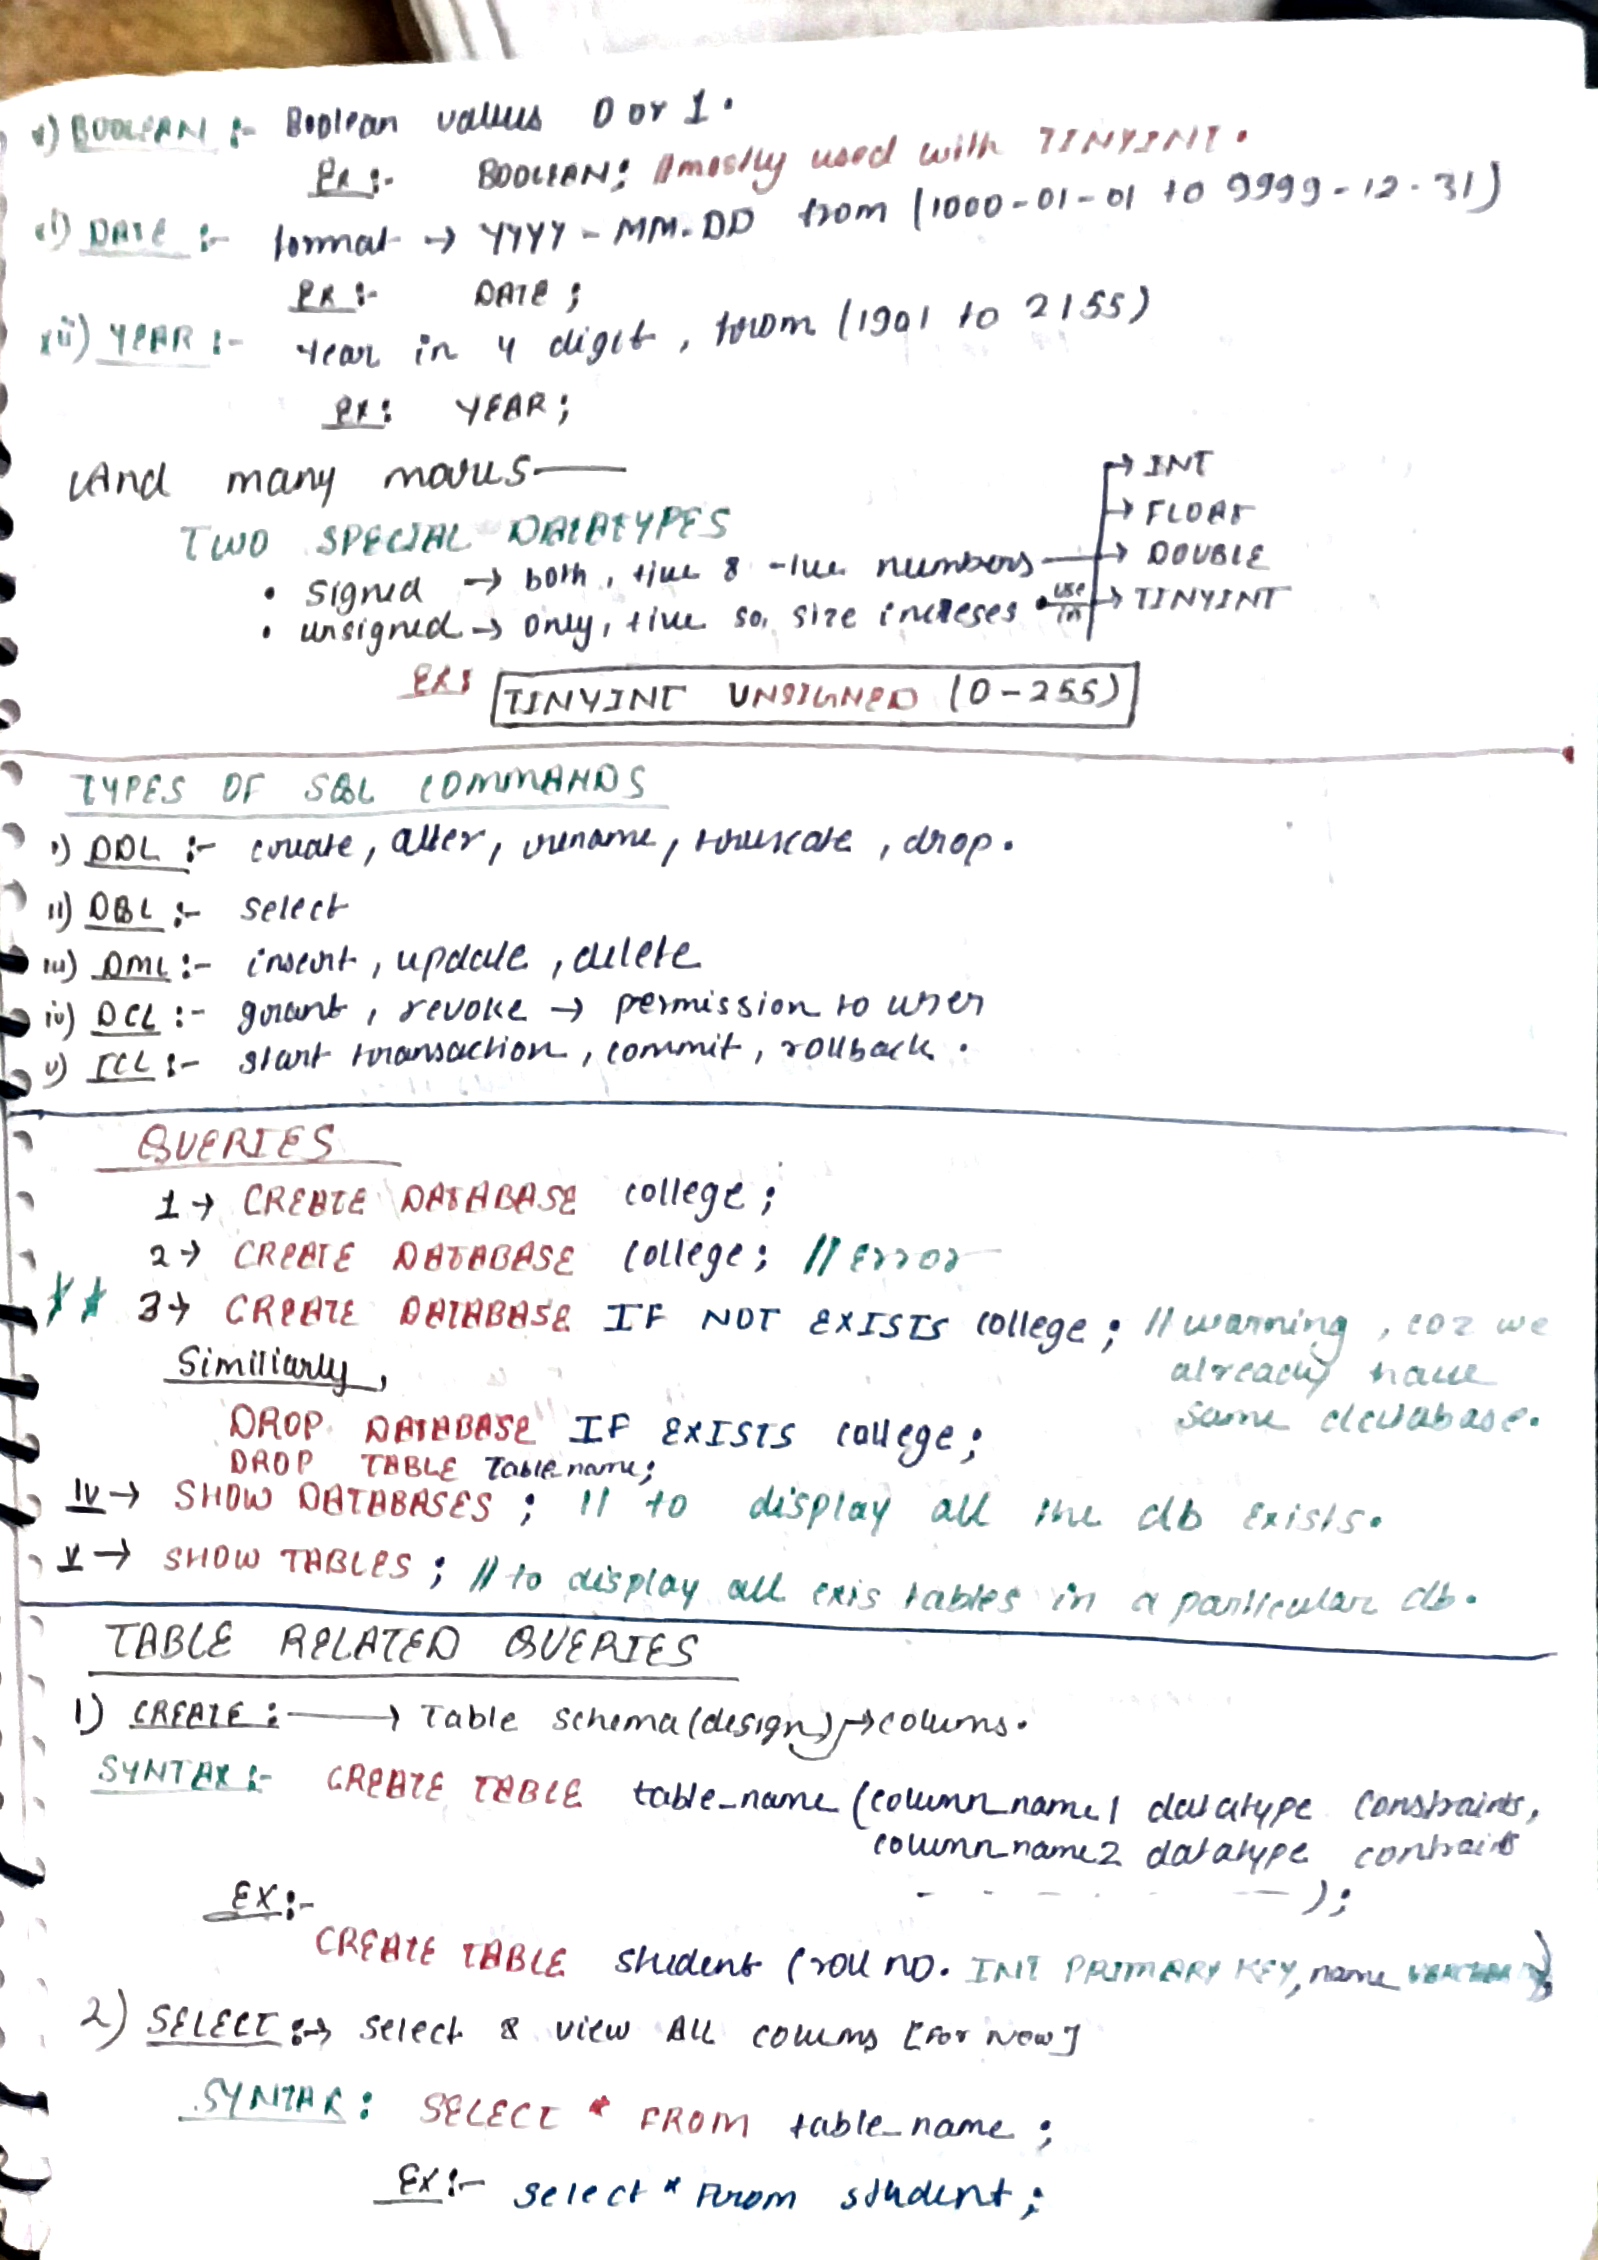 x) BOOLEAN :- Boolean values 0 or 1.
Ex :- BOOLEAN; //mostly used with TINYINT.
xi) DATE :- format → YYYY-MM-DD from (1000-01-01 to 9999-12-31)
Ex :- DATE ;
xii) YEAR :- year in 4 digit, from (1901 to 2155)
Ex: YEAR ;
And many mores—
TWO SPECIAL DATATYPES
• Signed → both, +ive & -ive numbers
• unsigned → only, +ive so, size increses • use in
→ INT
→ FLOAT
→ DOUBLE
→ TINYINT
Ex: TINYINT UNSIGNED (0-255)
TYPES OF SQL COMMANDS
i) DDL :- create, alter, rename, truncate, drop.
ii) DQL :- select
iii) DML :- insert, update, delete
iv) DCL :- grant, revoke → permission to user
v) TCL :- start transaction, commit, rollback.
QUERIES
1→ CREATE DATABASE college;
2→ CREATE DATABASE college; // Error
** 3→ CREATE DATABASE IF NOT EXISTS college; // warning, coz we
already have
same database.
Similiarly,
DROP DATABASE IF EXISTS college;
DROP TABLE Table name;
IV→ SHOW DATABASES ; // to display all the db exists.
V→ SHOW TABLES ; // to display all exis tables in a particular db.
TABLE RELATED QUERIES
1) CREATE : → Table schema(design) → colums.
SYNTAX :- CREATE TABLE table_name (column_name1 datatype constraints,
column_name2 datatype contraits
- - - - );
EX:-
CREATE TABLE student (roll no. INT PRIMARY KEY, name );
2) SELECT :→ select & view All colums [For Now]
SYNTAX : SELECT * FROM table_name ;
EX:- select * From student;